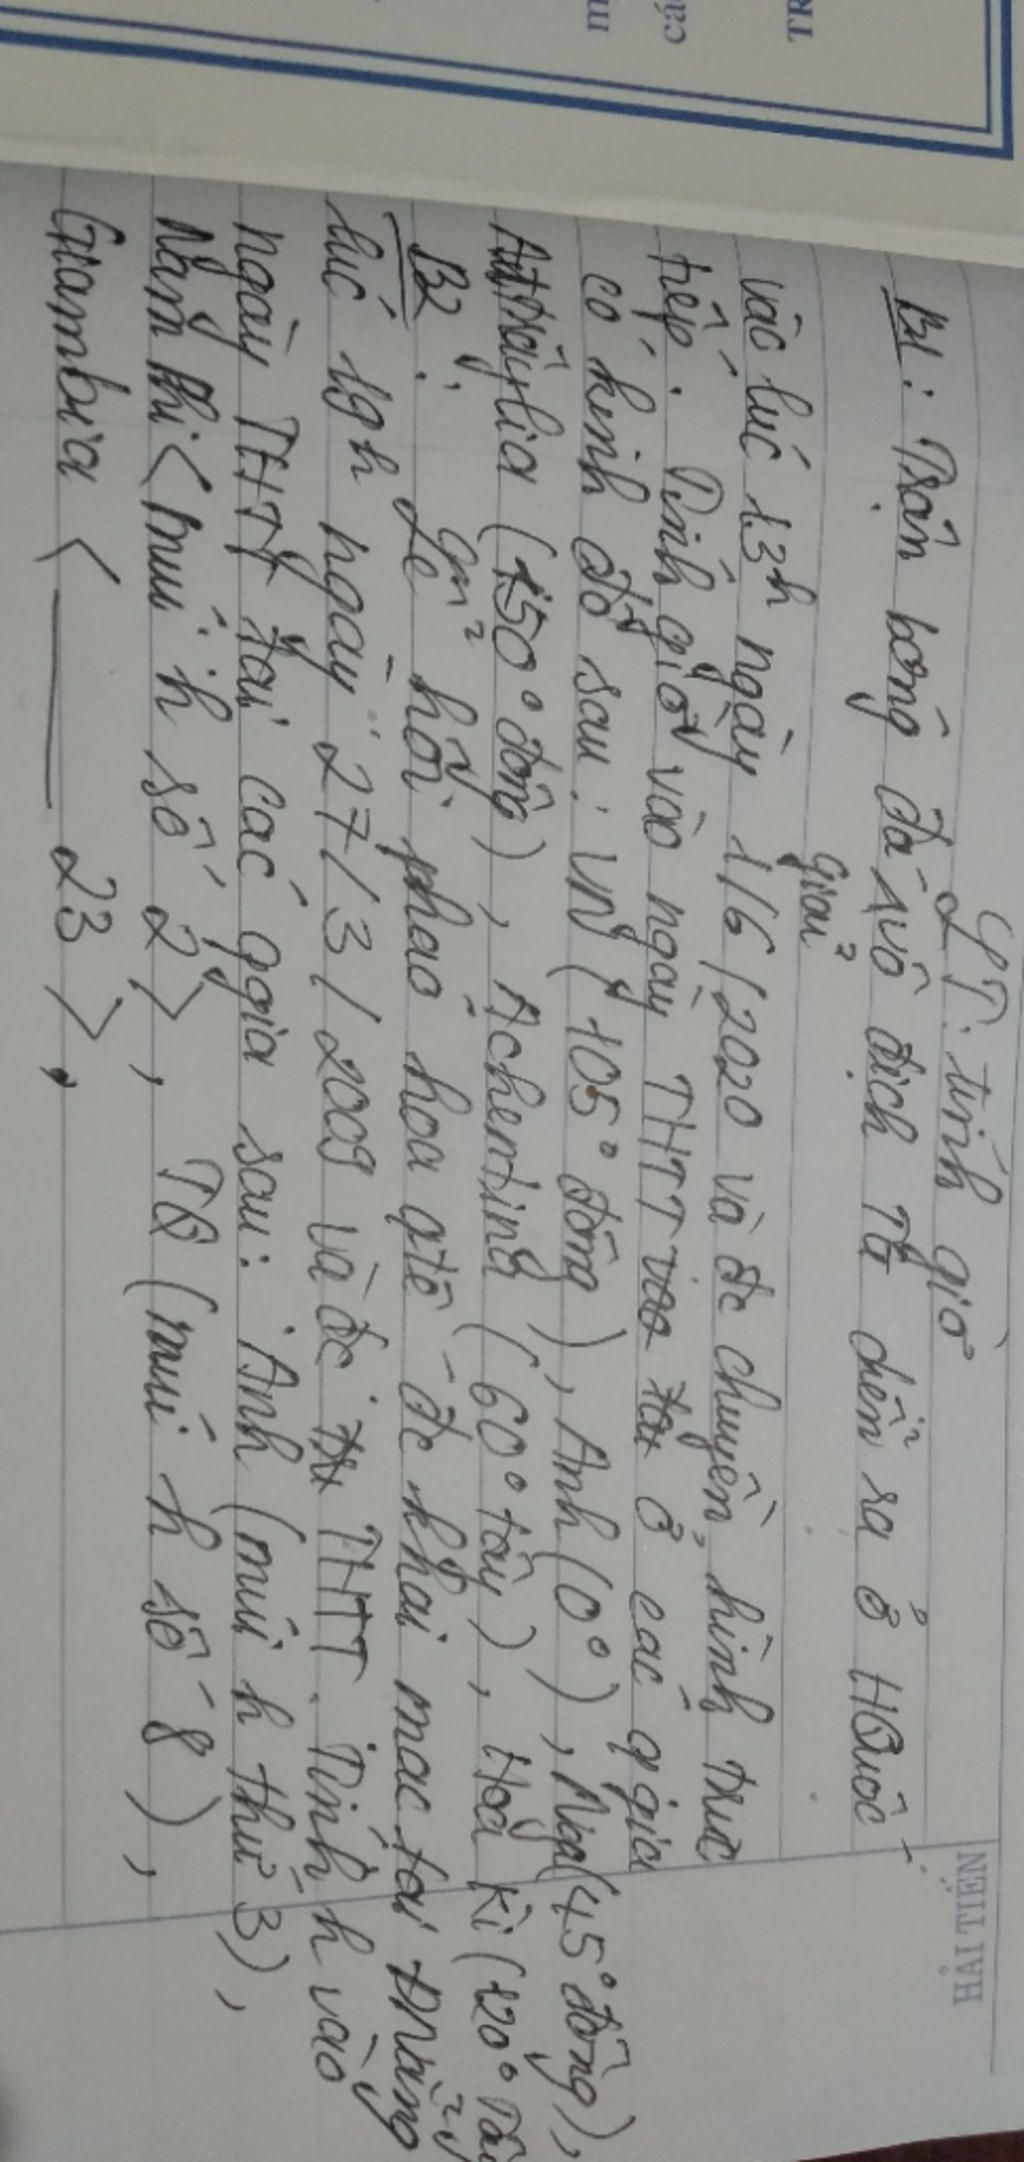 TR
cá
m
HẢI TIẾN
LT: tính giờ
B1: Trận bóng đá vô địch TG diễn ra ở HQuốc
giản
vào lúc 13h ngày 1/6/2020 và đc chuyền hình trực
tiếp. Tính giờ vào ngày THTT ở các qgia
có kinh độ sau: VN (105° đông), Anh (0°), Nga (45° đông),
Autrâylia (150° đông), Achentina (60° tây), Hoa Kì (120° Tây
B2: Lễ hội pháo hoa qtế đc khai mạc tại
lúc 19h ngày 27/3/2009 và đc THTT. Tính h vào
ngày THTT tại các qgia sau: Anh (múi h thứ 3),
Nam Phi < múi h số 2 >, TQ (múi h số 8),
Giambia < ____ 23 >,